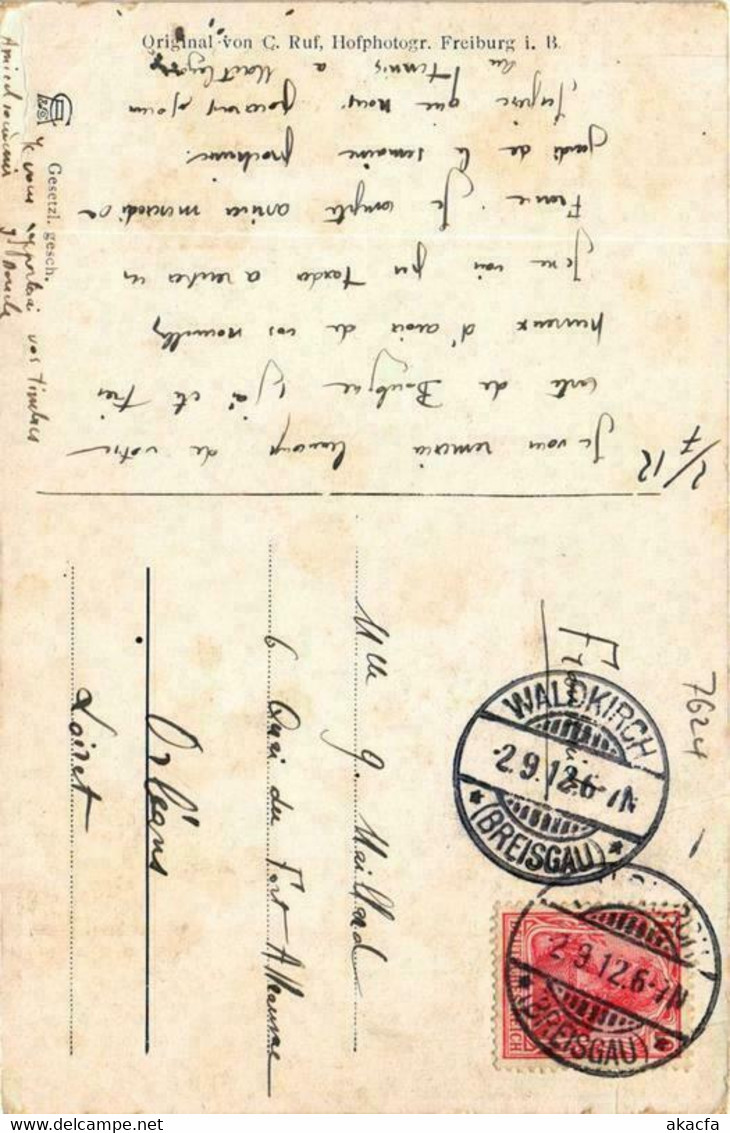 Original von C. Ruf, Hofphotogr. Freiburg i. B.
Gesetzl. gesch.
2/9 12
Je vous remercie beaucoup de votre
carte de Boulogne J'ai été très
heureux d'avoir de vos nouvelles
Je ne vais pas tarder a rentrer en
France. Je compte arriver mercredi ou
jeudi de la semaine prochaine.
J'espère que nous pourrons jouer
au tennis a
Je vous rapporterai vos timbres
France
Mlle G. Maillard
6 Quai du Fort Alleaume
Orléans
Loiret
7624
WALDKIRCH
2.9.12.6-7N
(BREISGAU)
2.9.12.6-7N
(BREISGAU)
REICH
www.akacfa.com
akacfa